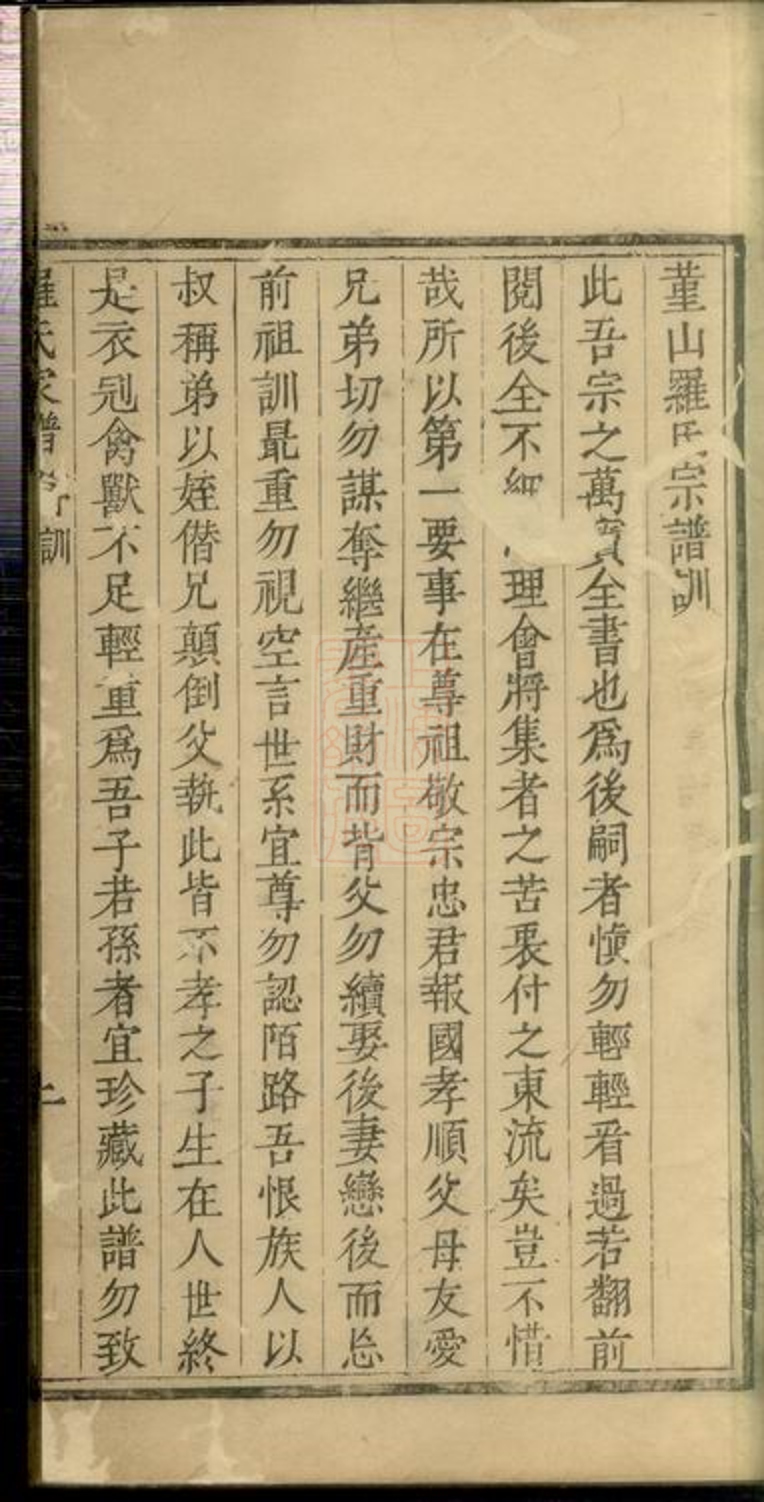 董山羅氏宗譜訓
此吾宗之萬寳全書也爲後嗣者愼勿輕輕看過若翻前
閱後全不細理會將集者之苦衷付之東流矣豈不惜
哉所以第一要事在尊祖敬宗忠君報國孝順父母友愛
兄弟切勿謀奪繼產重財而背父勿續娶後妻戀後而忘
前祖訓最重勿視空言世系宜尊勿認陌路吾恨族人以
叔稱弟以姪偺兄顛倒父執此皆不孝之子生在人世終
是衣冠禽獸不足輕重爲吾子若孫者宜珍藏此譜勿致
羅氏家譜 訓 上